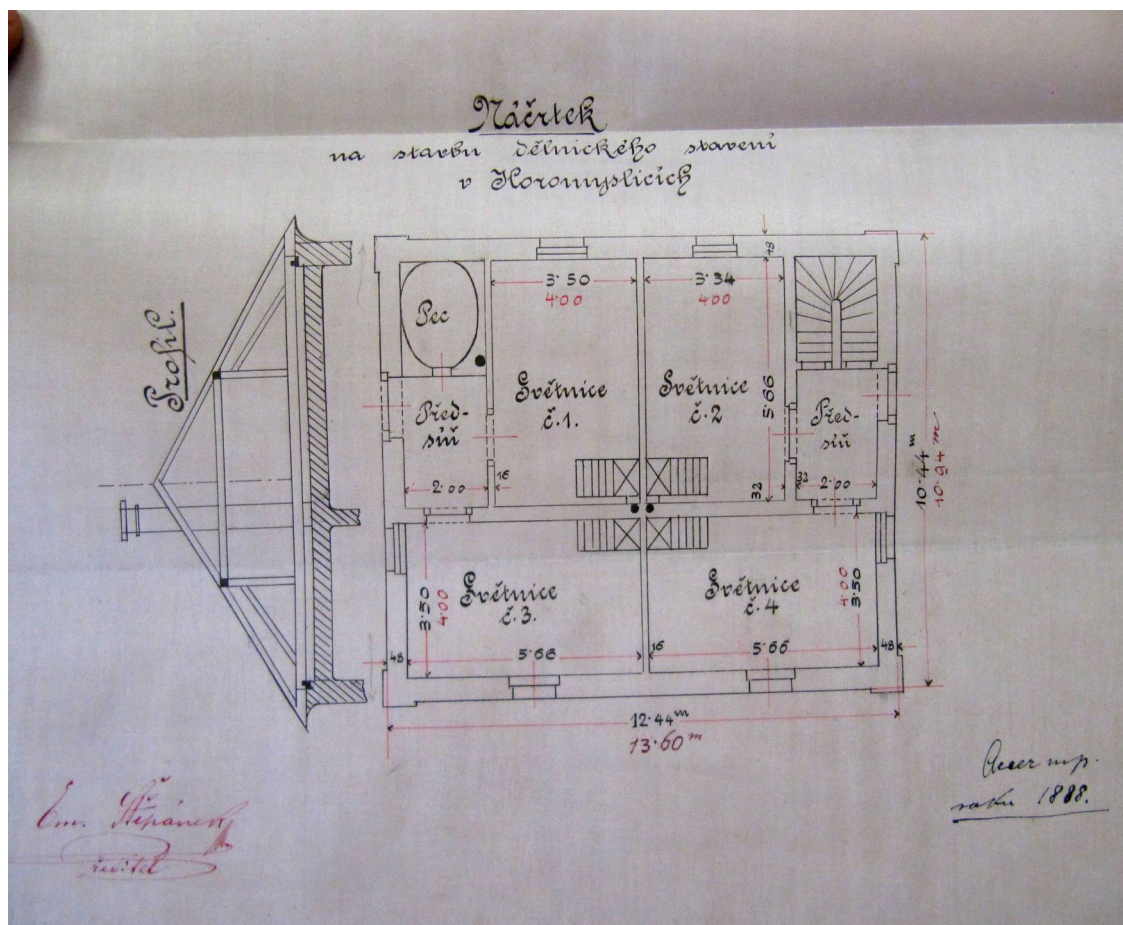 Náčrtek
na stavbu dělnického stavení
v Horomyslicích
Profil.
48
3·50
4·00
3·34
4·00
Pec
Světnice
č.1.
Světnice
č.2
5·66
Před-
síň
Před-
síň
2·00
16
32
32
2·00
10·44 m
10·94 m
Světnice
č.3.
3·50
4·00
Světnice
č.4
4·00
3·50
48
5·66
16
5·66
48
12·44 m
13·60 m
Em. Štěpánek
ředitel
mp.
roku 1888.